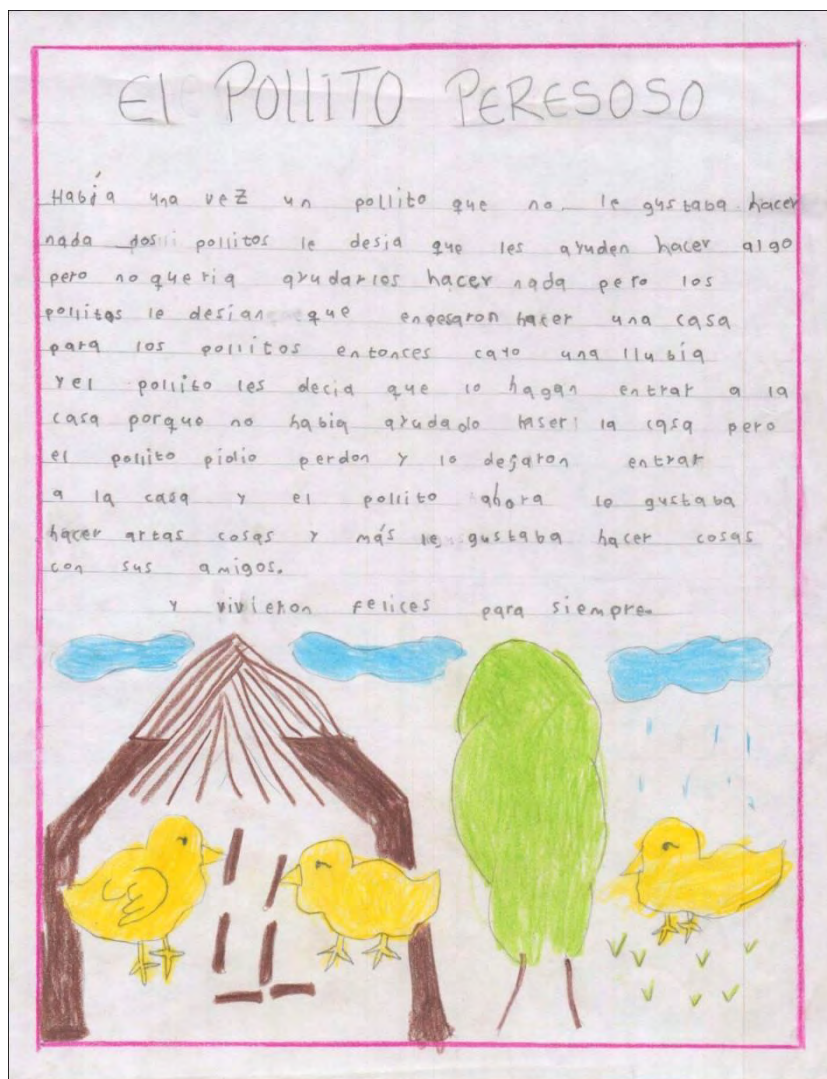 El POllITO PERESOSO
Había una vez un pollito que no le gustaba hacer
nada dos pollitos le desia que les ayuden hacer algo
pero no queria ayudarles hacer nada pero los
pollitos le desian que enpesaron hacer una casa
para los pollitos entonces cayo una llubia
y el pollito les decia que lo hagan entrar a la
casa porque no habia ayudado haser la casa pero
el pollito pidio perdon y lo dejaron entrar
a la casa y el pollito ahora le gustaba
hacer artas cosas y más le gustaba hacer cosas
con sus amigos.
y vivieron felices para siempre.